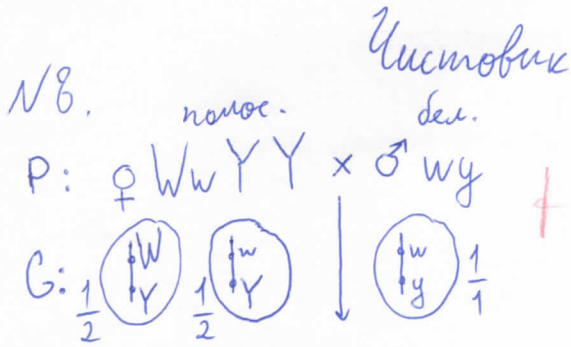 Чистовик
N8.
полос. бел.
P: ♀ WwYY × ♂ wy
G: 1/2 W Y 1/2 w Y w y 1/1